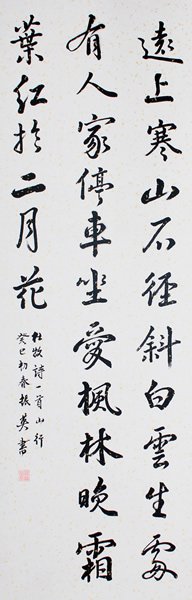 遠上寒山石徑斜白雲生處
有人家停車坐愛楓林晚霜
葉紅於二月花
杜牧詩一首山行
癸巳初春振英書